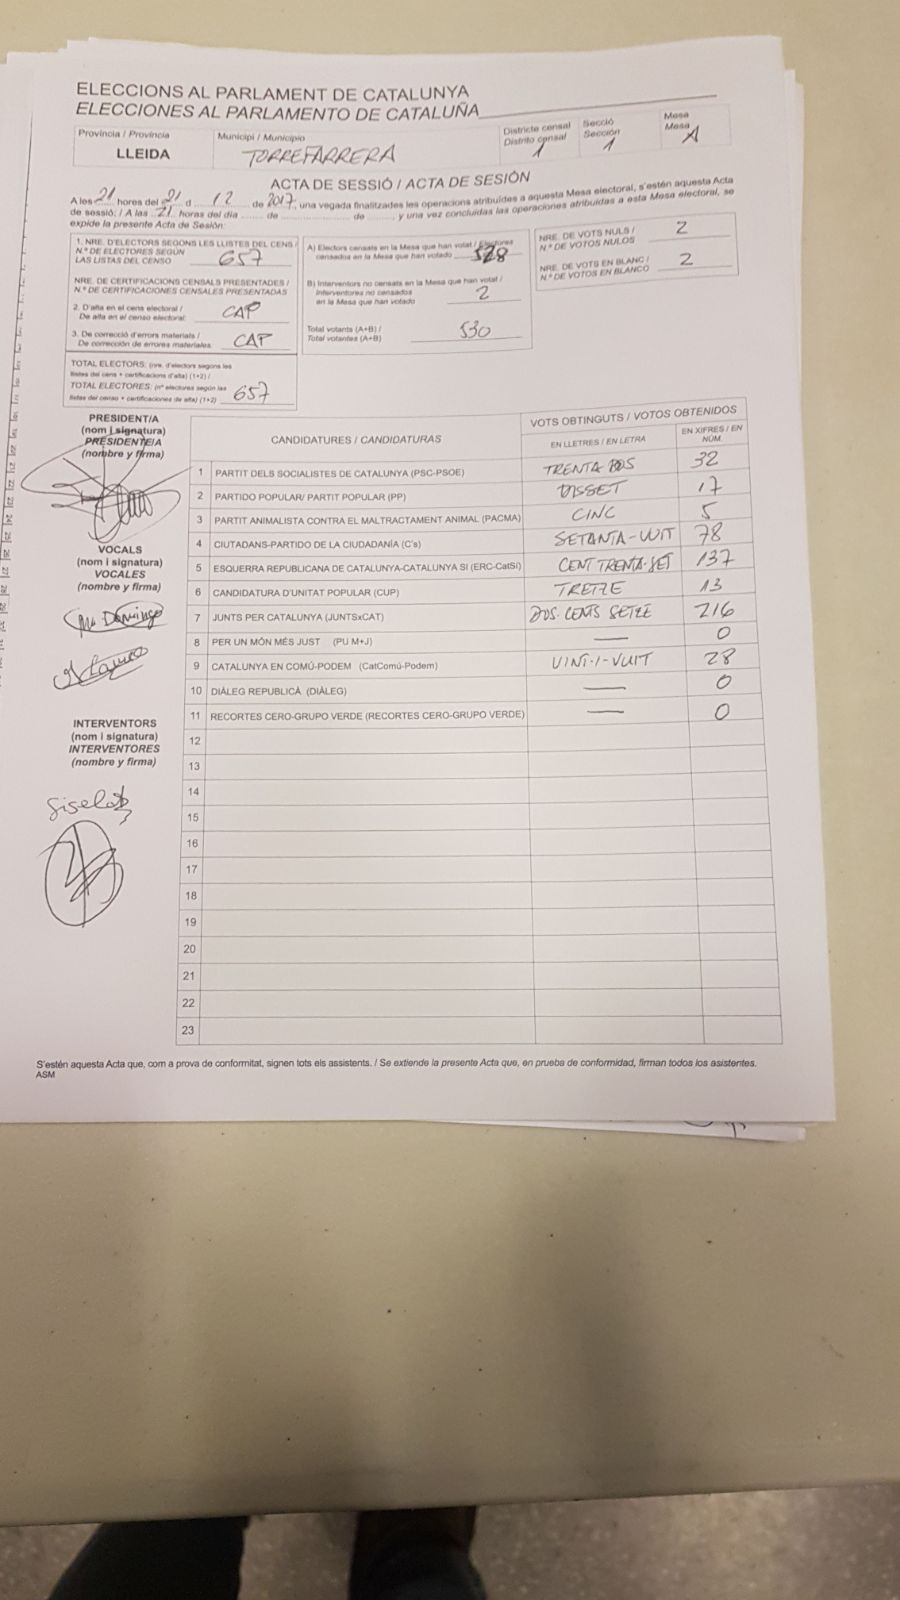 ELECCIONS AL PARLAMENT DE CATALUNYA
ELECCIONES AL PARLAMENTO DE CATALUÑA
Província / Provincia
LLEIDA
Municipi / Municipio
TORREFARRERA
Districte censal
Distrito censal
1
Secció
Sección
1
Mesa
Mesa
A
ACTA DE SESSIÓ / ACTA DE SESIÓN
A les 21 hores del 21 d 12 de 2017, una vegada finalitzades les operacions atribuïdes a aquesta Mesa electoral, s'estén aquesta Acta
de sessió: / A las 21 horas del día ........ de ........ de ........, y una vez concluidas las operaciones atribuidas a esta Mesa electoral, se
expide la presente Acta de Sesión:
1. NRE. D'ELECTORS SEGONS LES LLISTES DEL CENS /
N.º DE ELECTORES SEGÚN
LAS LISTAS DEL CENSO 657
NRE. DE CERTIFICACIONS CENSALS PRESENTADES /
N.º DE CERTIFICACIONES CENSALES PRESENTADAS
2. D'alta en el cens electoral /
De alta en el censo electoral: CAP
3. De correcció d'errors materials /
De corrección de errores materiales: CAP
TOTAL ELECTORS: (nre. d'electors segons les
llistes del cens + certificacions d'alta) (1+2) /
TOTAL ELECTORES: (nº electores según las
listas del censo + certificaciones de alta) (1+2) 657
A) Electors censats en la Mesa que han votat / Electores
censados en la Mesa que han votado 528
B) Interventors no censats en la Mesa que han votat /
Interventores no censados
en la Mesa que han votado 2
Total votants (A+B) /
Total votantes (A+B) 530
NRE. DE VOTS NULS /
N.º DE VOTOS NULOS 2
NRE. DE VOTS EN BLANC /
N.º DE VOTOS EN BLANCO 2
PRESIDENT/A
(nom i signatura)
PRESIDENTE/A
(nombre y firma)
VOCALS
(nom i signatura)
VOCALES
(nombre y firma)
Domingo
INTERVENTORS
(nom i signatura)
INTERVENTORES
(nombre y firma)
CANDIDATURES / CANDIDATURAS
VOTS OBTINGUTS / VOTOS OBTENIDOS
EN LLETRES / EN LETRA
EN XIFRES / EN NÚM.
1 PARTIT DELS SOCIALISTES DE CATALUNYA (PSC-PSOE) TRENTA-DOS 32
2 PARTIDO POPULAR/ PARTIT POPULAR (PP) DISSET 17
3 PARTIT ANIMALISTA CONTRA EL MALTRACTAMENT ANIMAL (PACMA) CINC 5
4 CIUTADANS-PARTIDO DE LA CIUDADANÍA (C's) SETANTA-VUIT 78
5 ESQUERRA REPUBLICANA DE CATALUNYA-CATALUNYA SÍ (ERC-CatSí) CENT TRENTA-SET 137
6 CANDIDATURA D'UNITAT POPULAR (CUP) TRETZE 13
7 JUNTS PER CATALUNYA (JUNTSxCAT) DOS-CENTS SETZE 216
8 PER UN MÓN MÉS JUST (PU M+J) — 0
9 CATALUNYA EN COMÚ-PODEM (CatComú-Podem) VINT-I-VUIT 28
10 DIÀLEG REPUBLICÀ (DIÀLEG) — 0
11 RECORTES CERO-GRUPO VERDE (RECORTES CERO-GRUPO VERDE) — 0
12
13
14
15
16
17
18
19
20
21
22
23
S'estén aquesta Acta que, com a prova de conformitat, signen tots els assistents. / Se extiende la presente Acta que, en prueba de conformidad, firman todos los asistentes.
ASM